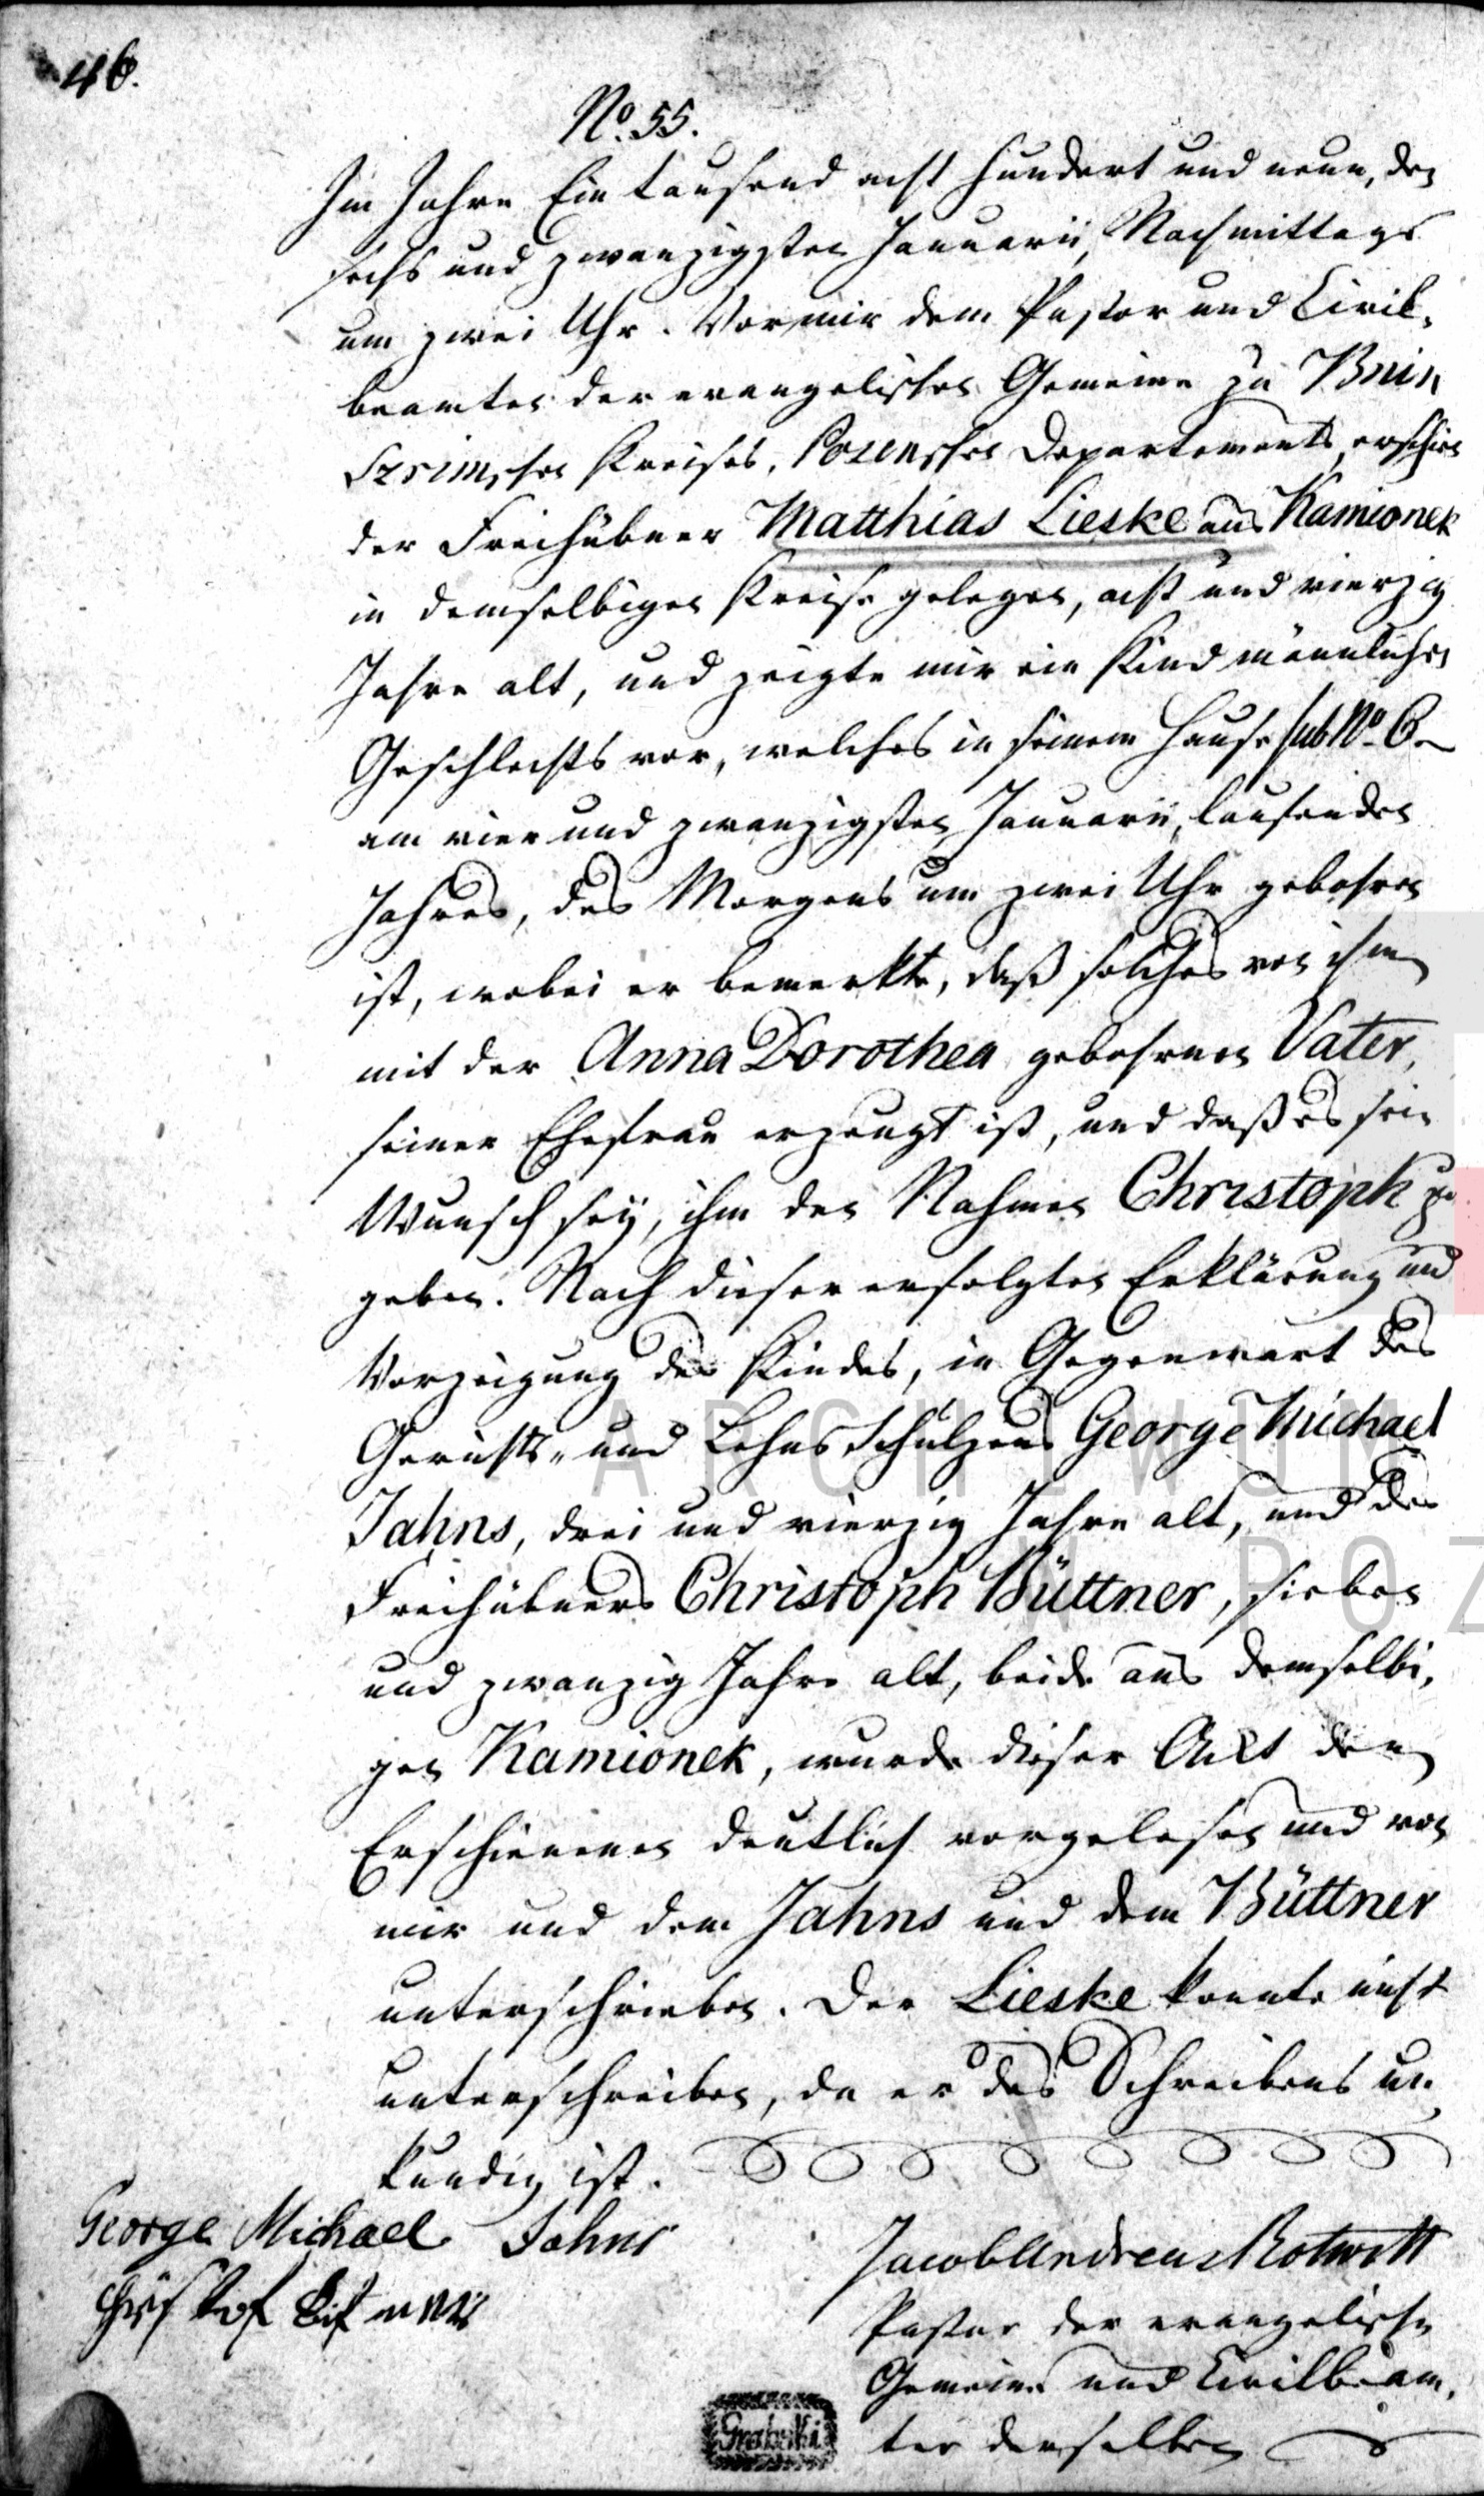 46.
No. 55.
Im Jahre Ein tausend acht hundert und neun, den
sechs und zwanzigsten Januarii, Nachmittags
um zwei Uhr. Vor mir dem Pastor und Civil-
beamten der evangelischen Gemeine zu Bnin
Szrimschen Kreises, Posenschen Departements, erschien
der Freihübner Matthias Lieske aus Kamionek
in demselbigen Kreise gelegen, acht und vierzig
Jahre alt, und zeigte mir ein Kind männlichen
Geschlechts vor, welches in seinem Hause sub No. 6.
am vier und zwanzigsten Januarii, laufenden
Jahres, des Morgens um zwei Uhr gebohren
ist, wobei er bemerkte, daß solches von ihm
mit der Anna Dorothea gebohrnen Vater,
seiner Ehefrau erzeugt ist, und daß es sein
Wunsch sey, ihm den Nahmen Christoph zu
geben. Nach dieser erfolgten Erklärung und
Vorzeigung des Kindes, in Gegenwart des
Gerichts- und Lehns Schulzens George Michael
Jahns, drei und vierzig Jahre alt, und des
Freihübners Christoph Büttner, sieben
und zwanzig Jahre alt, beide aus demselbi-
gen Kamionek, wurde dieser Act den
Erschienenen deutlich vorgelesen und von
mir und dem Jahns und dem Büttner
unterschrieben. Der Lieske konnte nicht
unterschreiben, da er des Schreibens un-
kundig ist.
George Michael Jahns
Jacob Andreas
Pastor der evangelischen
Gemeine und Civilbeam-
ter derselben
ARCHIWUM
W POZ